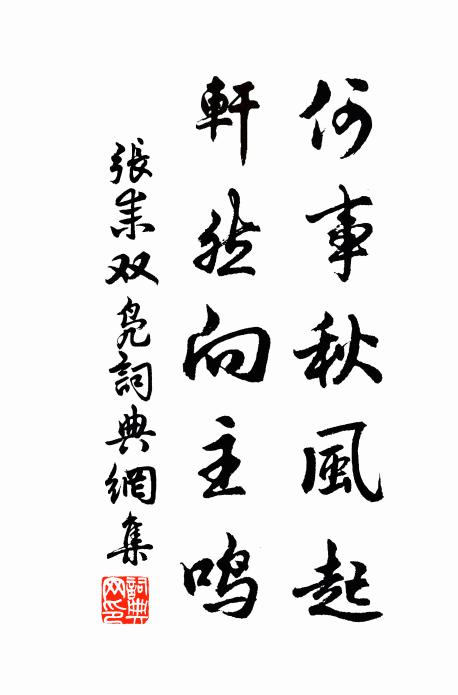 何事秋風起
軒然向主鳴
張耒双凫詞典網集
詞典網印